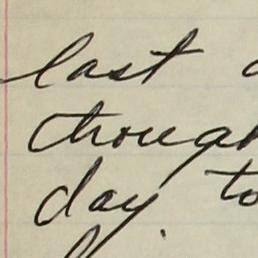 last
though
day to